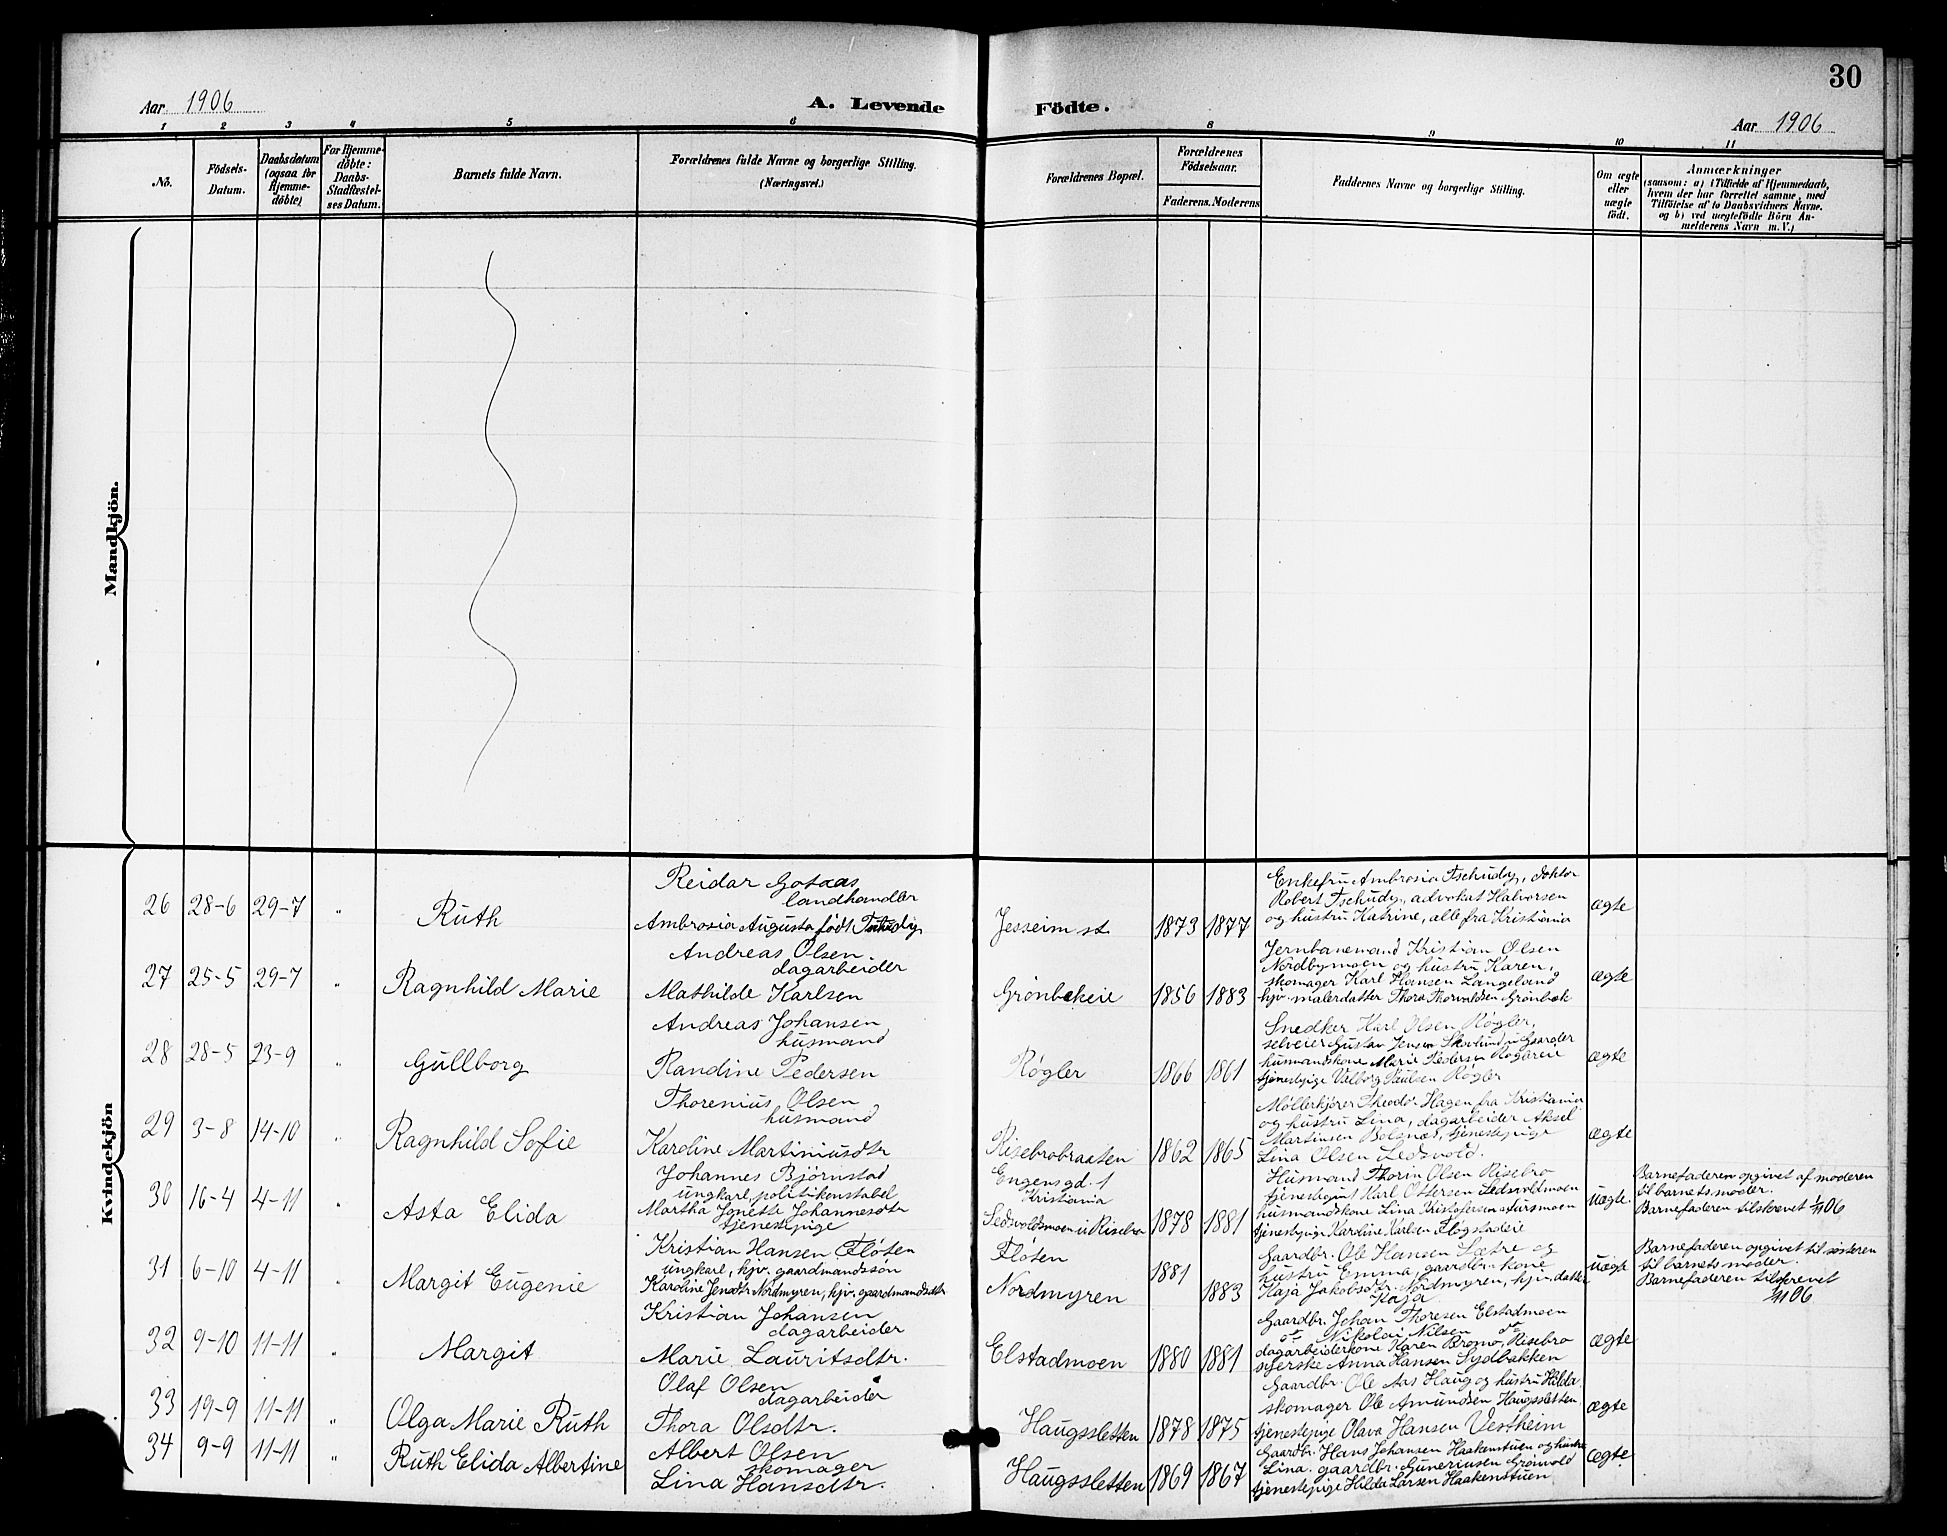 30
Aar 1906
A. Levende Födte.
Aar 1906
1 2 3 4 5 6 8 9 10 11
No.
Födsels-Datum.
Daabsdatum (ogsaa for Hjemme-döbte)
For Hjemme-döbte: Daabs-Stadfæstel-ses Datum.
Barnets fulde Navn.
Forældrenes fulde Navne og borgerlige Stilling.
(Næringsvei.)
Forældrenes Bopæl.
Forældrenes Födselsaar.
Faderens. Moderens
Faddernes Navne og borgerlige Stilling.
Om ægte eller uægte födt.
Anmærkninger
(saasom: a) i Tilfælde af Hjemmedaab,
hvem der har forrettet samme, med
Tilföielse af to Daabsvidners Navne.
og b) ved uægtefödte Börn An-
melderens Navn m. V.)
Mandkjön.
Kvindekjön
26 28-6 29-7 " Ruth
Reidar Gotaas
landhandler
Ambrosia Augusta født Tschudy
Jesseim st. 1873 1877
Enkefru Ambrosia Tschudy, doktor
Robert Tschudy, advokat Halvorsen
og hustru Katrine, alle fra Kristiania
ægte
27 25-5 29-7 " Ragnhild Marie
Andreas Olsen
dagarbeider
Mathilde Karlsen
Grønbækeie 1856 1883
Jernbanemand Kristian Olsen
Nordbymoen og hustru Karen,
skomager Karl Hansen Langeland
hjv. malerdatter Thora Thorvaldsen Grønbæk
ægte
28 28-5 23-9 " Gullborg
Andreas Johansen
husmand
Randine Pedersen
Røgler 1866 1861
Snedker Karl Olsen Røgler,
selveier Gustav Jensen u Gaarder
husmandskone Marie Pedersen
tjenestepige Valborg Paulsen Røgler
ægte
29 3-8 14-10 " Ragnhild Sofie
Thorenius Olsen
husmand
Karoline Martiniusdtr
Risebrobraaten 1862 1865
Møllerkjører Theodor Hagen fra Kristiania
og hustru Lina, dagarbeider Aksel
Martinsen Bolsnæs, tjenestepige
Lina Olsen Ledsvold.
ægte
30 16-4 4-11 " Asta Elida
Johannes Bjørnstad
ungkarl, politikonstabel
Martha Jonette Johannesdtr
tjenestepige
Engensgd. 1
Kristiania
Ledsvoldsmoen u Risebro 1878 1881
Husmand Thorin Olsen Risebro
tjenestegut Karl Ottersen Ledsvoldmoen
husmandskone Lina Kristofersen Aursmoen
tjenestepige Karoline Karlsen Fløgstadeie
uægte.
Barnefaderen opgivet af moderen
til barnets moder.
Barnefaderen tilskrevet 1/11 06
31 6-10 4-11 " Margit Eugenie
Kristian Hansen Fløten
ungkarl, hjv. gaardmandssøn
Karoline Jensdtr Nordmyren, hjv. gaardmandsdtr
Fløten 1881
Nordmyren 1883
Gaardbr. Ole Hansen Sætre og
hustru Emma, gaardbr. kone
Kaja Jakobsdtr. Nordmyren, hjv. datter
Kaja
uægt
Barnefaderen opgivet til søsteren
til barnets moder.
Barnefaderen tilskrevet
1/11 06
32 9-10 11-11 " Margit
Kristian Johansen
dagarbeider
Marie Lauritsdtr.
Elstadmoen 1880 1881
Gaardbr. Johan Thoresen Elstadmoen
do Nikolai Nilsen do
dagarbeiderkone Karen Bergmo, Risebro
syerske Anna Hansen Sydbakken
ægte
33 19-9 11-11 " Olga Marie Ruth
Olaf Olsen
dagarbeider
Thora Olsdtr.
Haugssletten 1878 1875
Gaardbr. Ole Aas Haug og hustru Hilda
skomager Ole Amundsen Haugssletten,
tjenestepige Olava Hansen Vestheim
ægte
34 9-9 11-11 " Ruth Elida Albertine
Albert Olsen
skomager
Lina Hansdtr.
Haugssletten 1869 1867
Gaardbr. Hans Johansen Haakenstuen og hustru
Lina, gaardbr. Guneriusen Grønvold
tjenestepige Hilda Larsen Haakenstuen
ægte